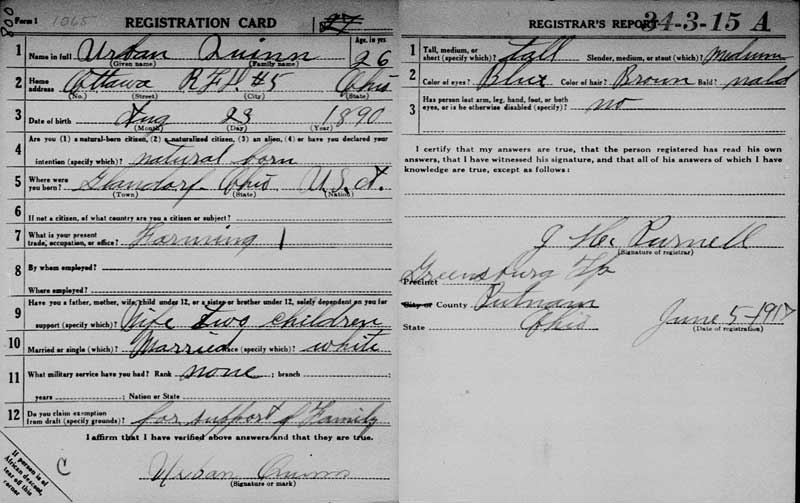 800
Form 1 1065 REGISTRATION CARD 27
1 Name in full Urban Quinn Age, in yrs. 26
(Given name) (Family name)
2 Home address Ottawa R.F.D. #5 Ohio
(No.) (Street) (City) (State)
3 Date of birth Aug 23 1890
(Month) (Day) (Year)
4 Are you (1) a natural-born citizen, (2) a naturalized citizen, (3) an alien, (4) or have you declared your
intention (specify which)? natural born
5 Where were you born? Glandorf Ohio U.S.A.
(Town) (State) (Nation)
6 If not a citizen, of what country are you a citizen or subject?
7 What is your present trade, occupation, or office? Farming 1
8 By whom employed?
Where employed?
9 Have you a father, mother, wife, child under 12, or a sister or brother under 12, solely dependent on you for
support (specify which)? Wife two children
10 Married or single (which)? Married Race (specify which)? white
11 What military service have you had? Rank none ; branch ;
years ; Nation or State
12 Do you claim exemption from draft (specify grounds)? for support of Family
I affirm that I have verified above answers and that they are true.
C
Urban Quinn
(Signature or mark)
If person is of
African descent,
tear off this
corner
REGISTRAR'S REPORT 34-3-15 A
1 Tall, medium, or short (specify which)? tall Slender, medium, or stout (which)? medium
2 Color of eyes? Blue Color of hair? Brown Bald?
3 Has person lost arm, leg, hand, foot, or both
eyes, or is he otherwise disabled (specify)? no
I certify that my answers are true, that the person registered has read his own
answers, that I have witnessed his signature, and that all of his answers of which I have
knowledge are true, except as follows:
Purnell
(Signature of registrar)
Precinct Greensburg Tp
City or County Putnam
State Ohio June 5-1917
(Date of registration)